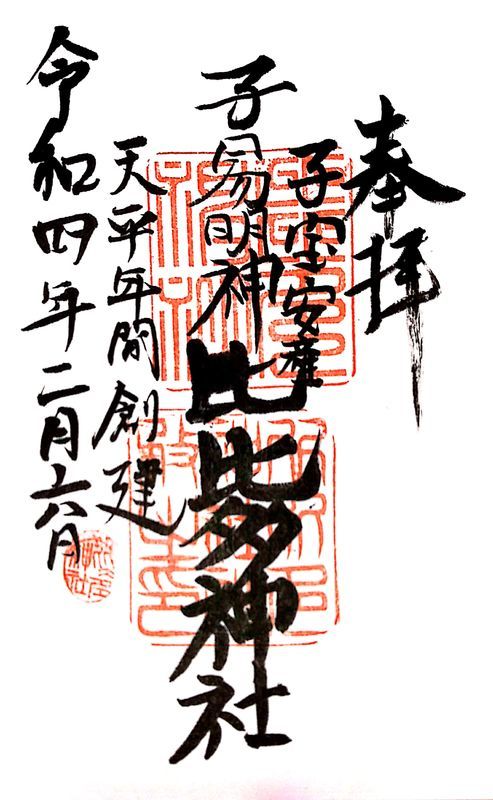 奉拝
子宝安産
子易明神
比比多神社
天平年間創建
令和四年二月六日